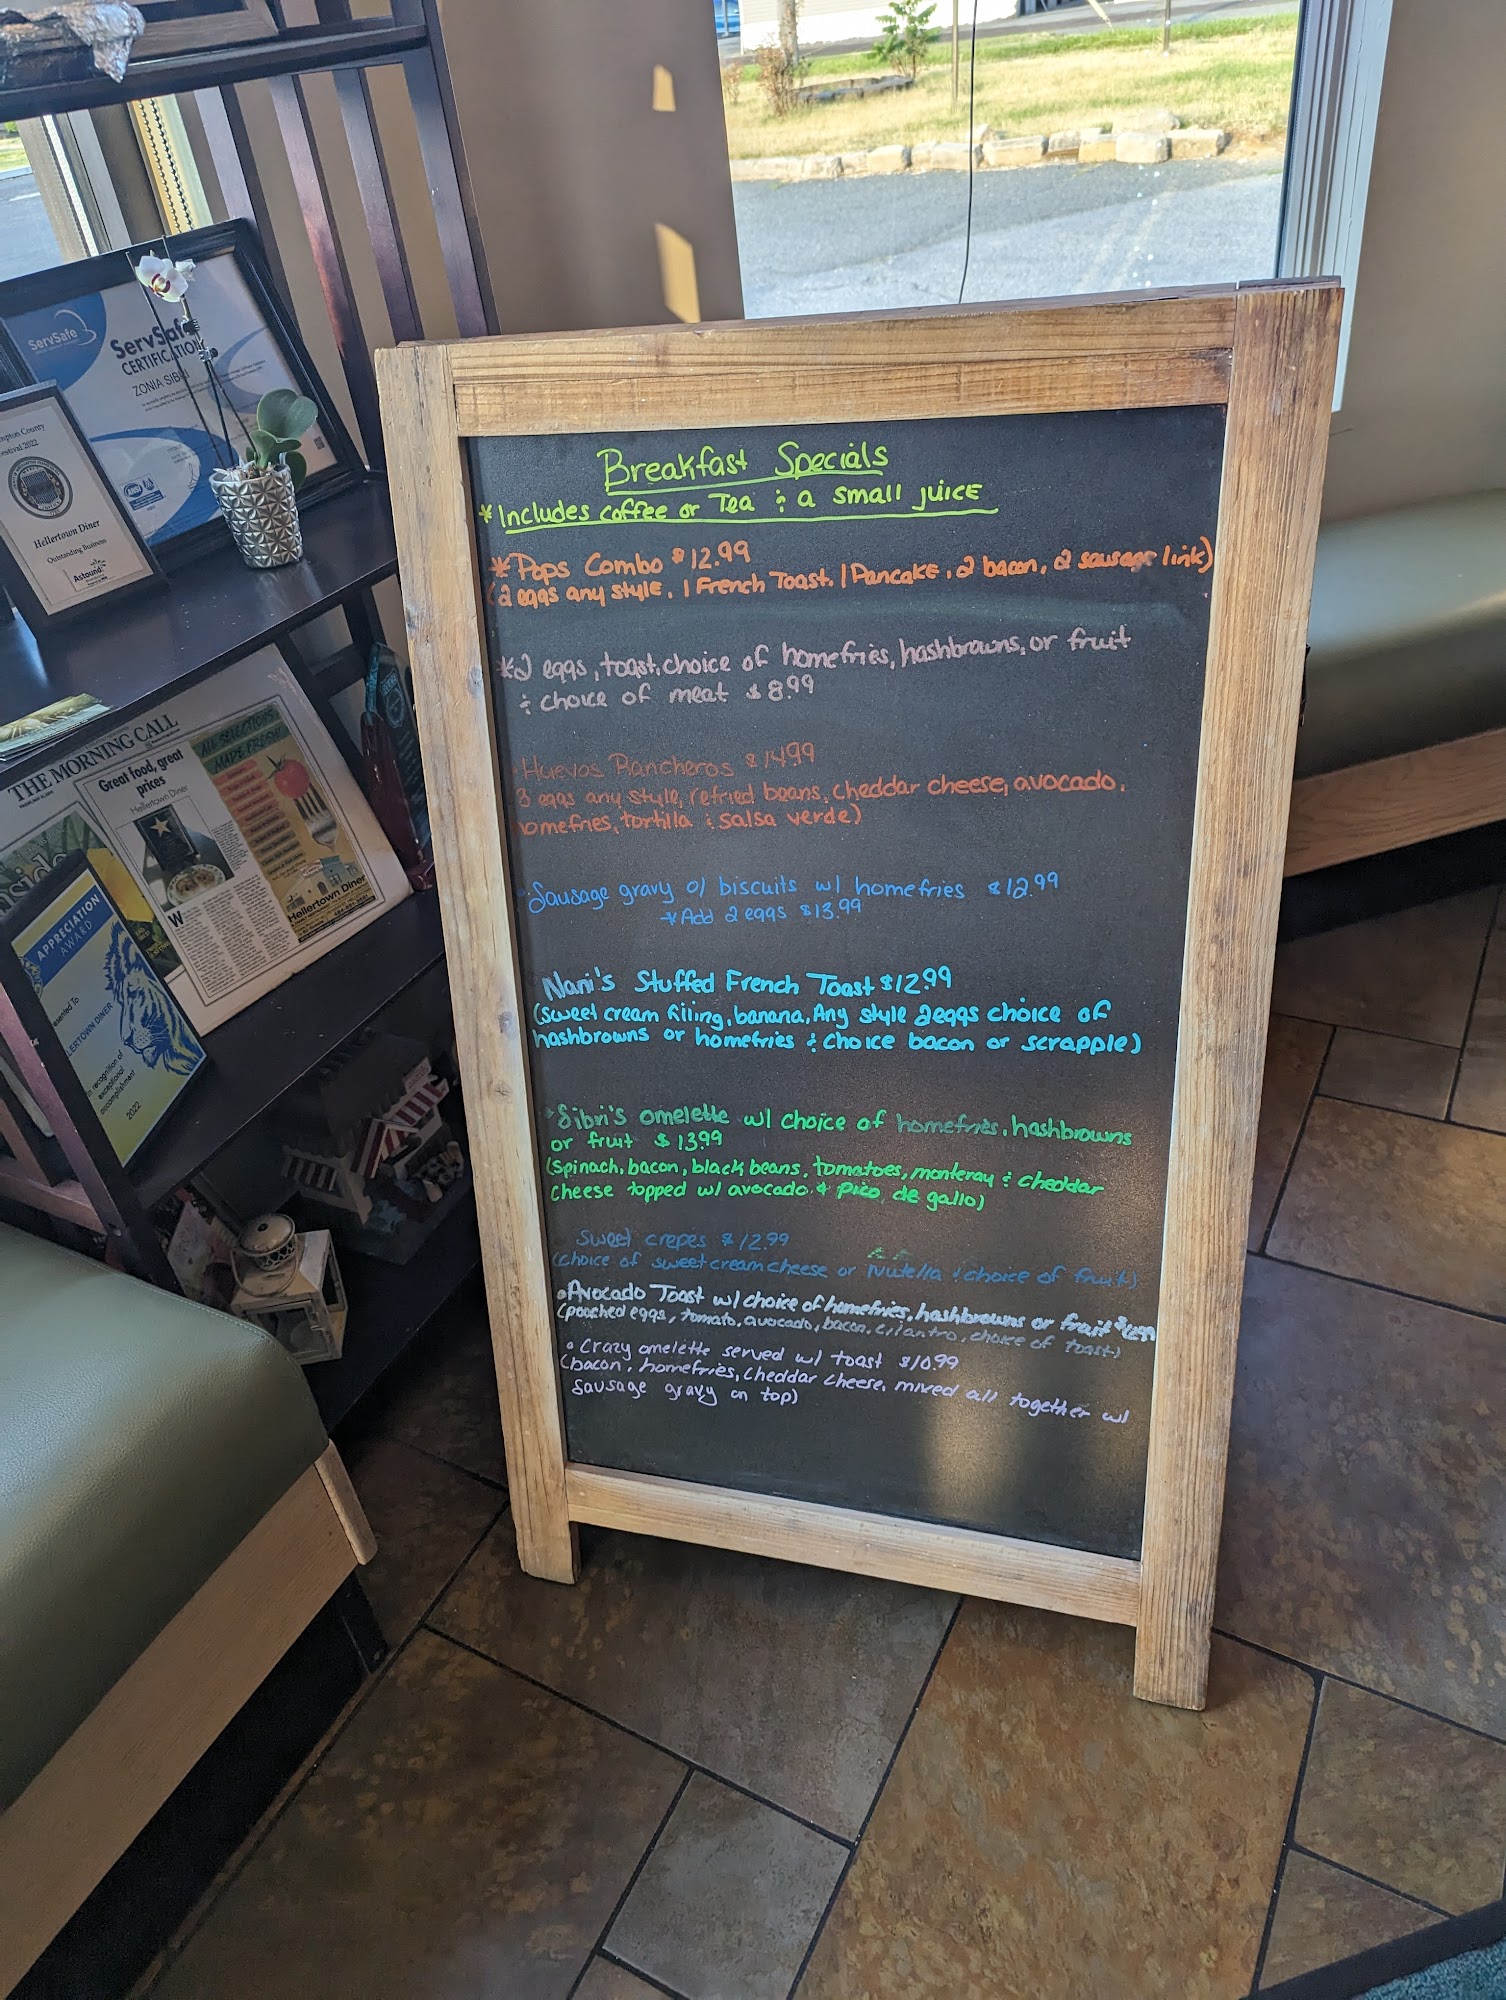 Breakfast Specials
*Includes coffee or Tea & a small juice
*Pops Combo $12.99
(2 eggs any style, 1 French Toast, 1 Pancake, 2 bacon, 2 sausage link)
*2 eggs, toast, choice of homefries, hashbrowns, or fruit
& choice of meat $8.99
Huevos Rancheros $14.99
3 eggs any style, refried beans, cheddar cheese, avocado,
homefries, tortilla & salsa verde)
Sausage gravy o/ biscuits w/ homefries $12.99
*Add 2 eggs $13.99
Nani's Stuffed French Toast $12.99
(sweet cream filling, banana, Any style 2eggs choice of
hashbrowns or homefries & choice bacon or scrapple)
Sibri's omelette w/ choice of homefries, hashbrowns
or fruit $13.99
(spinach, bacon, black beans, tomatoes, monteray & cheddar
cheese topped w/ avocado & pico de gallo)
Sweet crepes $12.99
(choice of sweet cream cheese or Nutella & choice of fruit)
Avocado Toast w/ choice of homefries, hashbrowns or fruit
(poached eggs, tomato, avocado, bacon, cilantro, choice of toast)
Crazy omelette served w/ toast $10.99
(bacon, homefries, cheddar cheese, mixed all together w/
sausage gravy on top)
ServSafe
ServSafe
CERTIFICATION
ZONIA SIBRI
mpton County
estival 2022
Hellertown Diner
Outstanding Business
Astound
THE MORNING CALL
Great food, great
prices
Hellertown Diner
ALL SELECTIONS
MADE FRESH!
Hellertown Diner
APPRECIATION
AWARD
esented To
LLERTOWN DINER
in recognition of
exceptional
accomplishment
2022